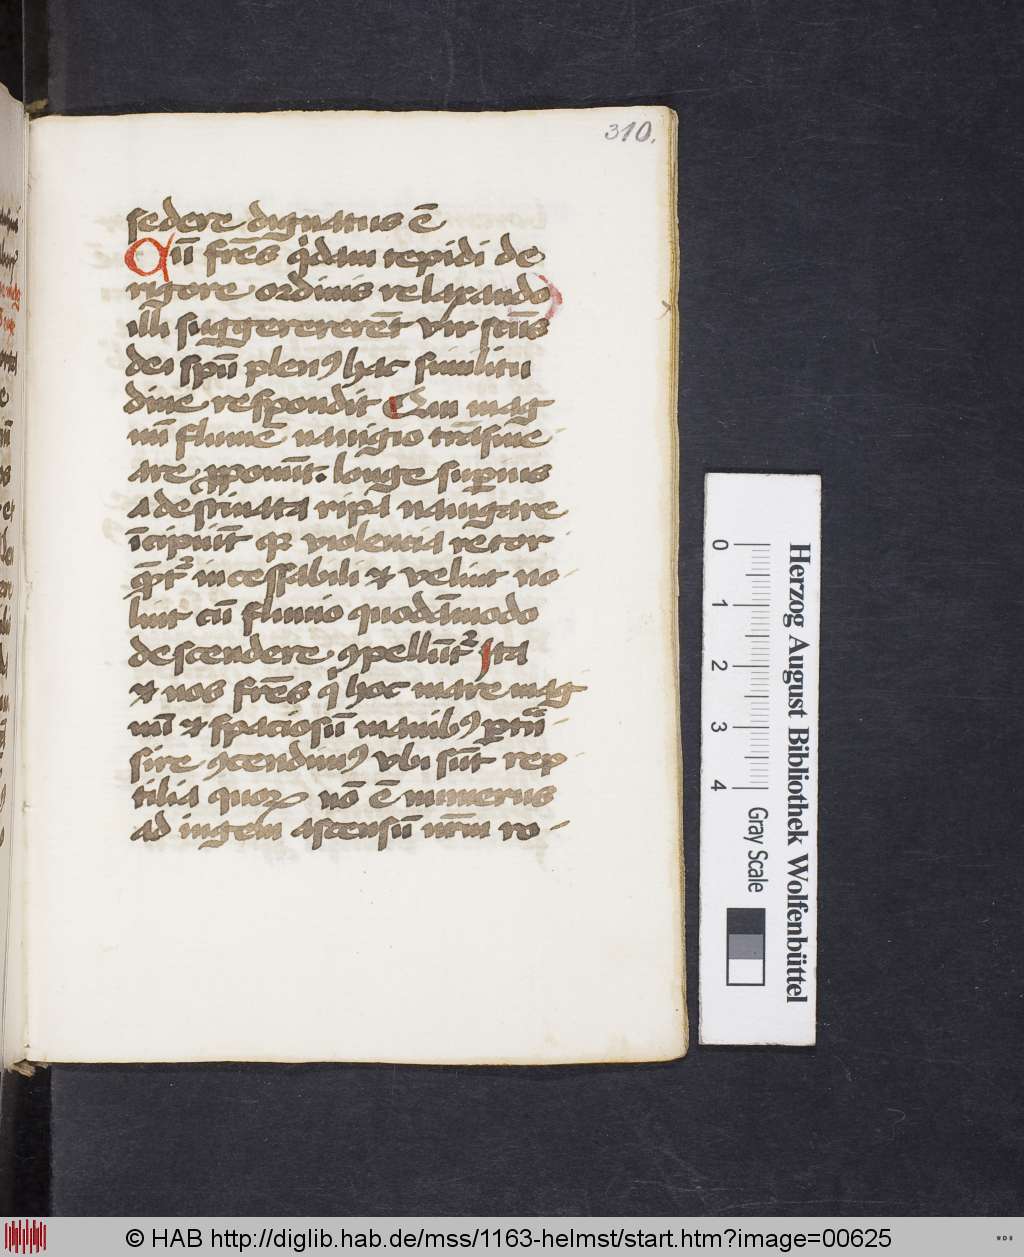 310.
sedere dignatus ē
Qū fr̄es q̇dam tepidi de
rigore ordinis relaxando
illi suggererēt vir sc̄us
dei spū plenꝰ hac similitu
dine respondit Cum mag
nū flumē nauigio trāsme
are ꝓponūt. longe suꝑius
a destinata ripa nauigare
īcipiūt violencia
incessabili et velint no
lint cū fluuio quodāmodo
descendere ꝯpellūt᷑ Ita
et nos fr̄es q̇ hoc mare mag
nū et spaciosū manibꝰ
sire ꝯtendimꝰ vbi sūt rep
tilia quoꝝ nō ē numerus
ad ascensū nr̄m ro
Herzog August Bibliothek Wolfenbüttel
0 1 2 3 4
Gray Scale
© HAB http://diglib.hab.de/mss/1163-helmst/start.htm?image=00625